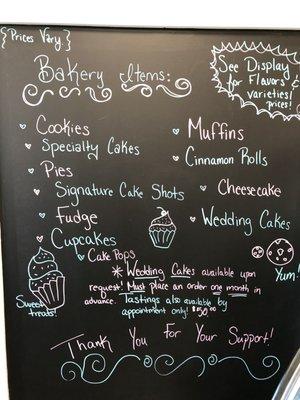 {Prices Vary}
See Display
for Flavors &
varieties/
prices!
Bakery Items:
Cookies
Muffins
Specialty Cakes
Cinnamon Rolls
Pies
Signature Cake Shots
Cheesecake
Fudge
Wedding Cakes
Cupcakes
Cake Pops
Yum!
* Wedding Cakes available upon
request! Must place an order one month in
advance. Tastings also available by
appointment only! $50.00
Sweet
treats!
Thank You For Your Support!